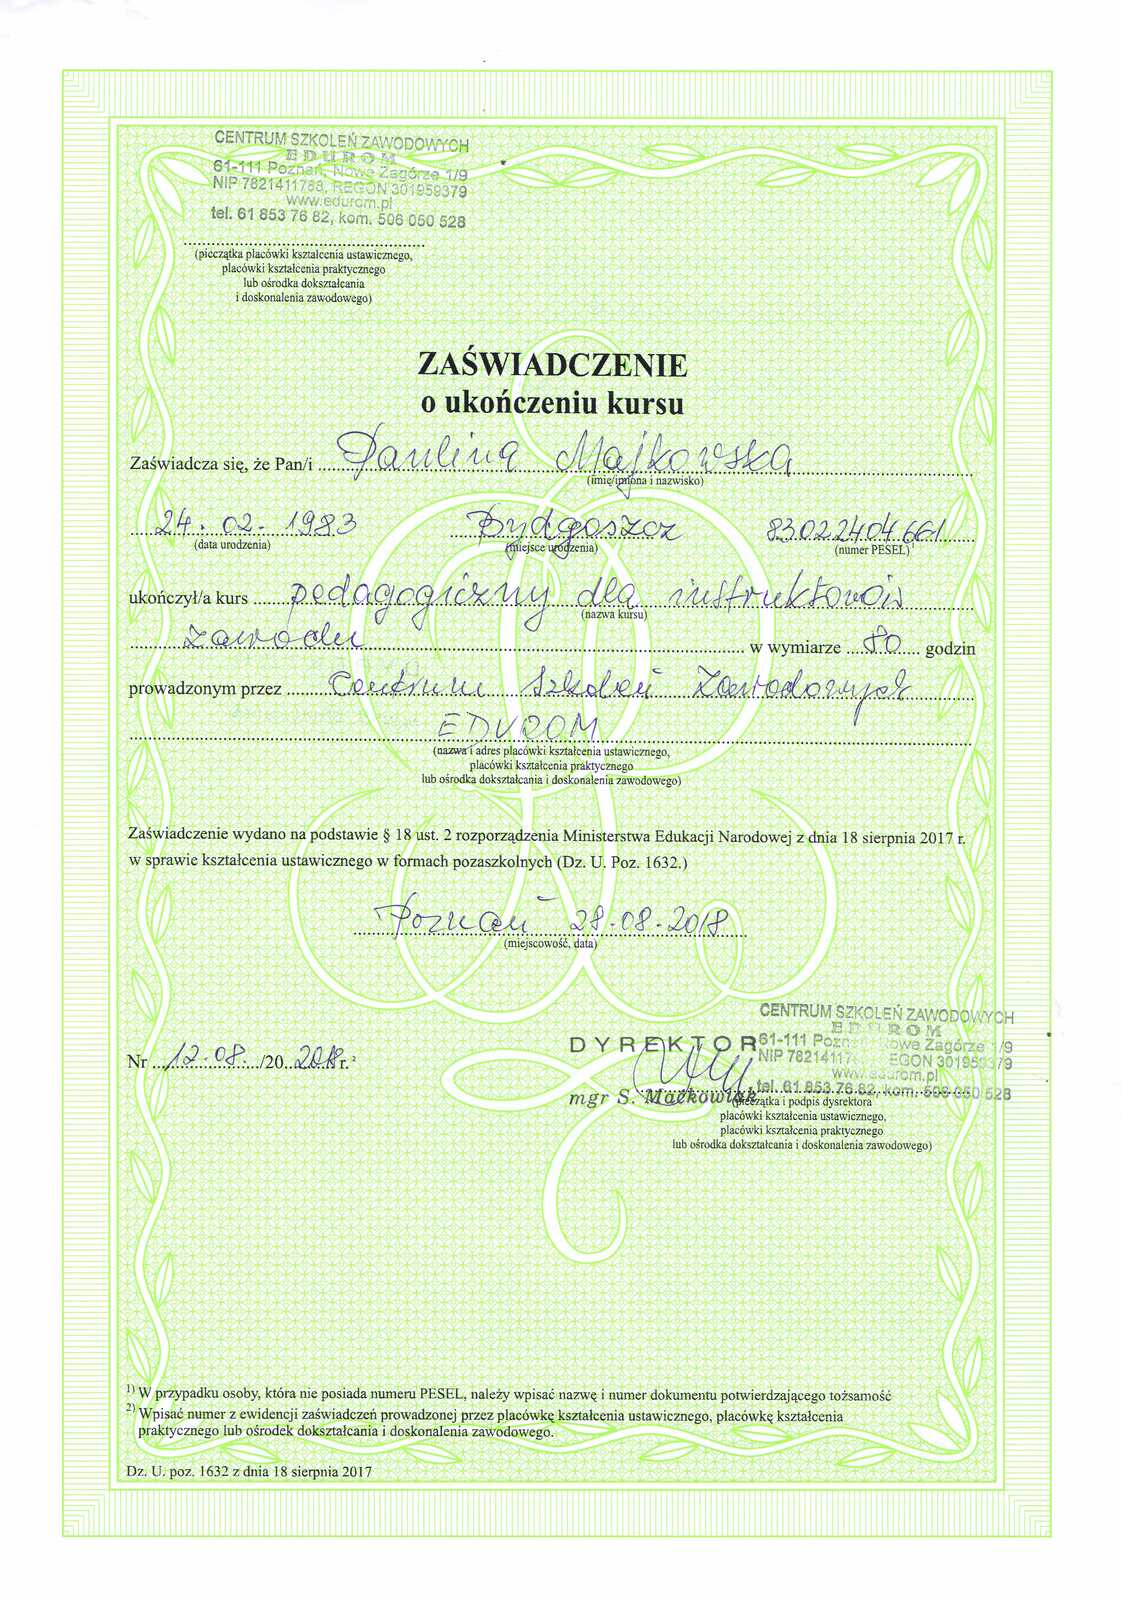 CENTRUM SZKOLEŃ ZAWODOWYCH
EDUROM
61-111 Poznań, Nowe Zagórze 1/9
NIP 7821411788, REGON 301959379
www.edurom.pl
tel. 61 853 76 82, kom. 506 050 528
(pieczątka placówki kształcenia ustawicznego,
placówki kształcenia praktycznego
lub ośrodka dokształcania
i doskonalenia zawodowego)
ZAŚWIADCZENIE
o ukończeniu kursu
Zaświadcza się, że Pan/i Paulina Majkowska
(imię/imiona i nazwisko)
24.02.1983 Bydgoszcz 83022404661
(data urodzenia) (miejsce urodzenia) (numer PESEL) 1
ukończył/a kurs pedagogiczny dla instruktorów
(nazwa kursu)
zawodu w wymiarze 80 godzin
prowadzonym przez Centrum Szkoleń Zawodowych
EDUROM
(nazwa i adres placówki kształcenia ustawicznego,
placówki kształcenia praktycznego
lub ośrodka dokształcania i doskonalenia zawodowego)
Zaświadczenie wydano na podstawie § 18 ust. 2 rozporządzenia Ministerstwa Edukacji Narodowej z dnia 18 sierpnia 2017 r.
w sprawie kształcenia ustawicznego w formach pozaszkolnych (Dz. U. Poz. 1632.)
Poznań 28-08-2018
(miejscowość, data)
CENTRUM SZKOLEŃ ZAWODOWYCH
EDUROM
DYREKTOR 61-111 Poznań, Nowe Zagórze 1/9
Nr 12.08. /20 2018 r. 2
NIP 78214117 EGON 301959379
www.edurom.pl
tel. 61 853 76 82, kom. 506 050 528
mgr S. Maćkowiak
(pieczątka i podpis dysrektora
placówki kształcenia ustawicznego,
placówki kształcenia praktycznego
lub ośrodka dokształcania i doskonalenia zawodowego)
1) W przypadku osoby, która nie posiada numeru PESEL, należy wpisać nazwę i numer dokumentu potwierdzającego tożsamość
2) Wpisać numer z ewidencji zaświadczeń prowadzonej przez placówkę kształcenia ustawicznego, placówkę kształcenia
praktycznego lub ośrodek dokształcania i doskonalenia zawodowego.
Dz. U. poz. 1632 z dnia 18 sierpnia 2017